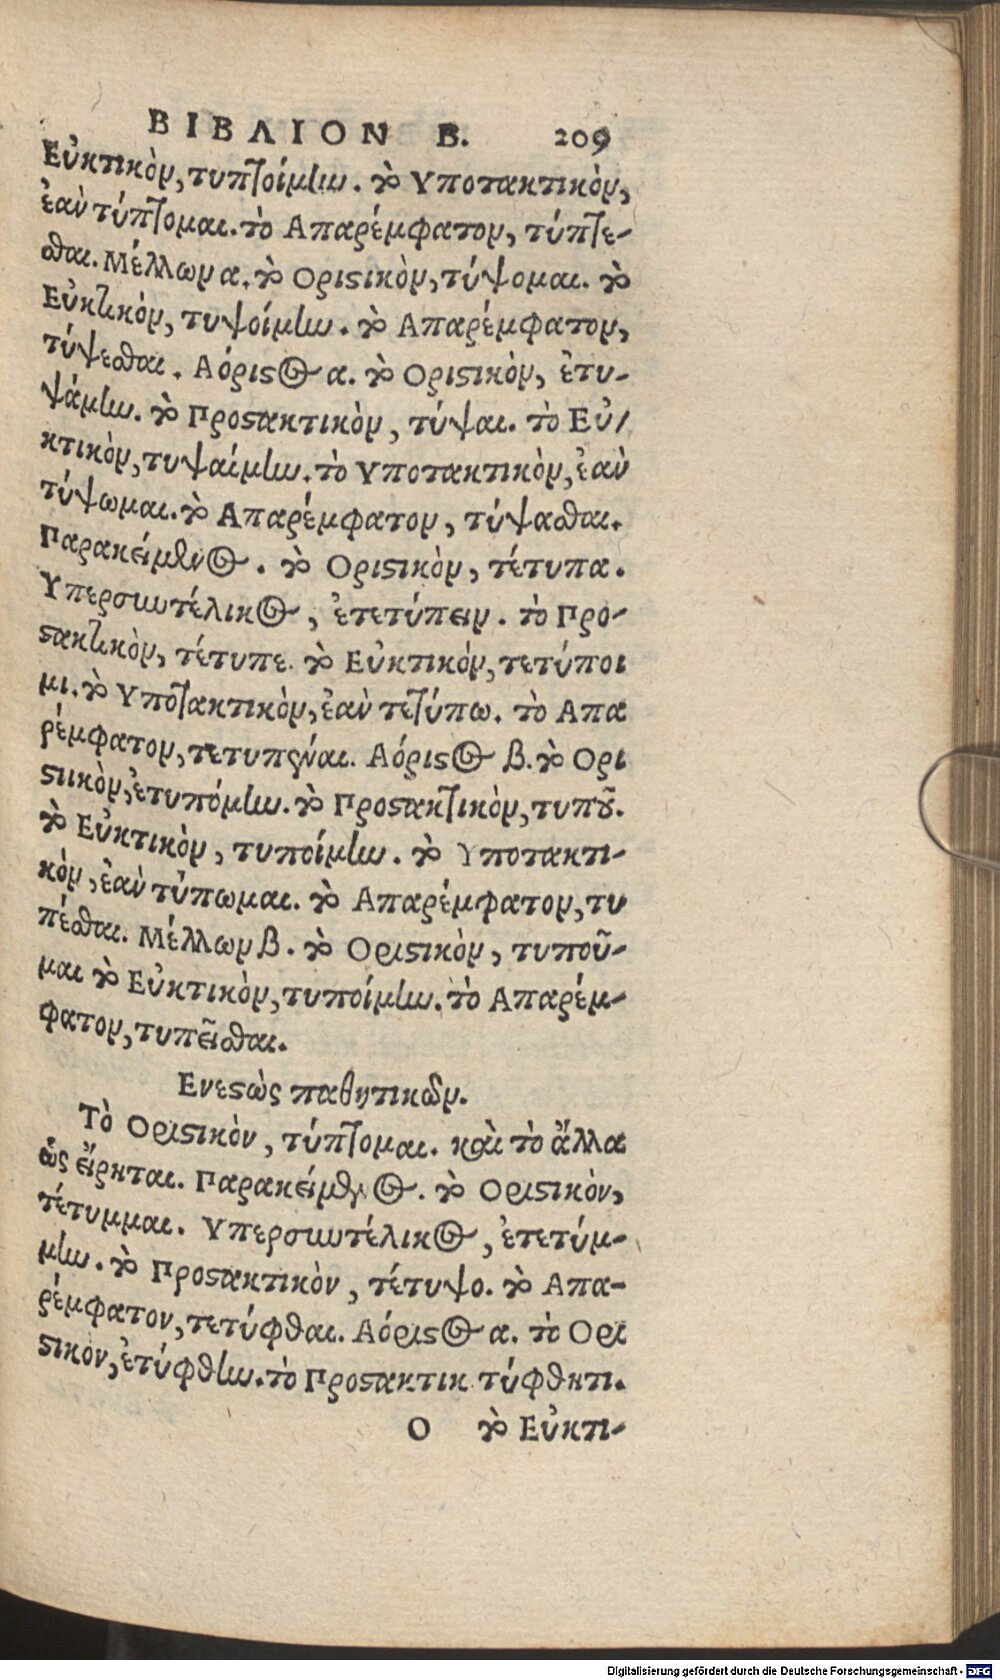 ΒΙΒΛΙΟΝ Β. 209
Εὐκτικὸν, τυπτοίμlω. τὸ Υποτακτικὸν,
ἐαν τύπτομαι. τὸ Απαρέμφατον, τύπτε-
σθαι. Μέλλων α. τὸ Οριστικὸν, τύψομαι. τὸ
Εὐκτικὸν, τυψοίμlω. τὸ Απαρέμφατον,
τύψεσθαι. Αόριστος α. τὸ Οριστικὸν, ἐτυ-
ψάμlω. τὸ Προστακτικὸν, τύψαι. τὸ Εὐ/
κτικὸν, τυψαίμlω. τὸ Υποτακτικὸν, ἐαν
τύψωμαι. τὸ Απαρέμφατον, τύψασθαι.
Παρακείμενος. τὸ Οριστικὸν, τέτυπα.
Υπερσυντέλικος, ἐτετύπειν. τὸ Προ-
στακτικὸν, τέτυπε. τὸ Εὐκτικὸν, τετύποι
μι. τὸ Υποτακτικὸν, ἐαν τετύπω. τὸ Απα
ρέμφατον, τετυπέναι. Αόριστος β. τὸ Ορι
στικὸν, ἐτυπόμlω. τὸ Προστακτικὸν, τυποῦ.
τὸ Εὐκτικὸν, τυποίμlω. τὸ Υποτακτι-
κὸν, ἐαν τύπωμαι. τὸ Απαρέμφατον, τυ
πέσθαι. Μέλλων β. τὸ Οριστικὸν, τυποῦ-
μαι τὸ Εὐκτικὸν, τυποίμlω. τὸ Απαρέμ-
φατον, τυπεῖσθαι.
Ενεστὼς παθητικῶν.
Τὸ Οριστικὸν, τύπτομαι. καὶ τὸ ἄλλα
ὡς εἴρηται. Παρακείμενος. τὸ Οριστικὸν,
τέτυμμαι. Υπερσυντέλικος, ἐτετύμ-
μlω. τὸ Προστακτικὸν, τέτυψο. τὸ Απα-
ρέμφατον, τετύφθαι. Αόριστος α. τὸ Ορι
στικὸν, ἐτύφθlω. τὸ Προστακτικ τύφθητι.
Ο τὸ Εὐκτι-
Digitalisierung gefördert durch die Deutsche Forschungsgemeinschaft - DFG